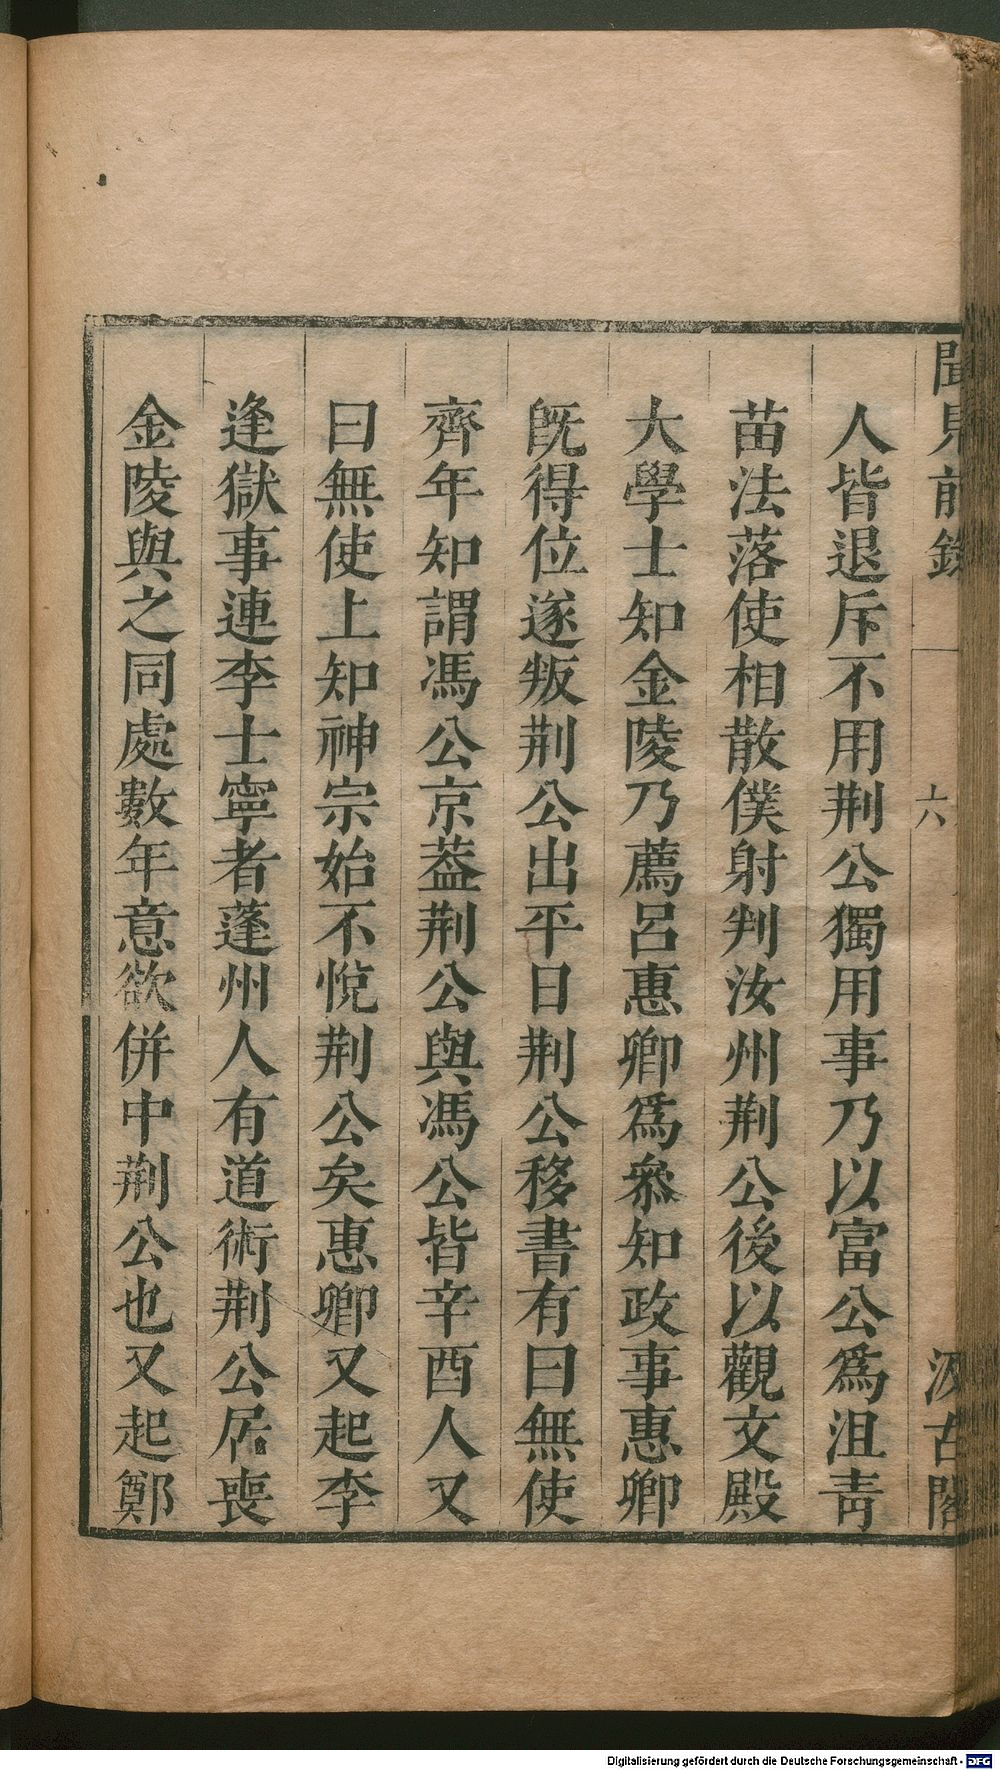 聞見前錄 六 汲古閣
人皆退斥不用荆公獨用事乃以富公爲沮青
苗法落使相散僕射判汝州荆公後以觀文殿
大學士知金陵乃薦呂惠卿爲叅知政事惠卿
旣得位遂叛荆公出平日荆公移書有曰無使
齊年知謂馮公京葢荆公與馮公皆辛酉人又
曰無使上知神宗始不悅荆公矣惠卿又起李
逢獄事連李士寧者蓬州人有道術荆公居喪
金陵與之同處數年意欲併中荆公也又起鄭
Digitalisierung gefördert durch die Deutsche Forschungsgemeinschaft - DFG